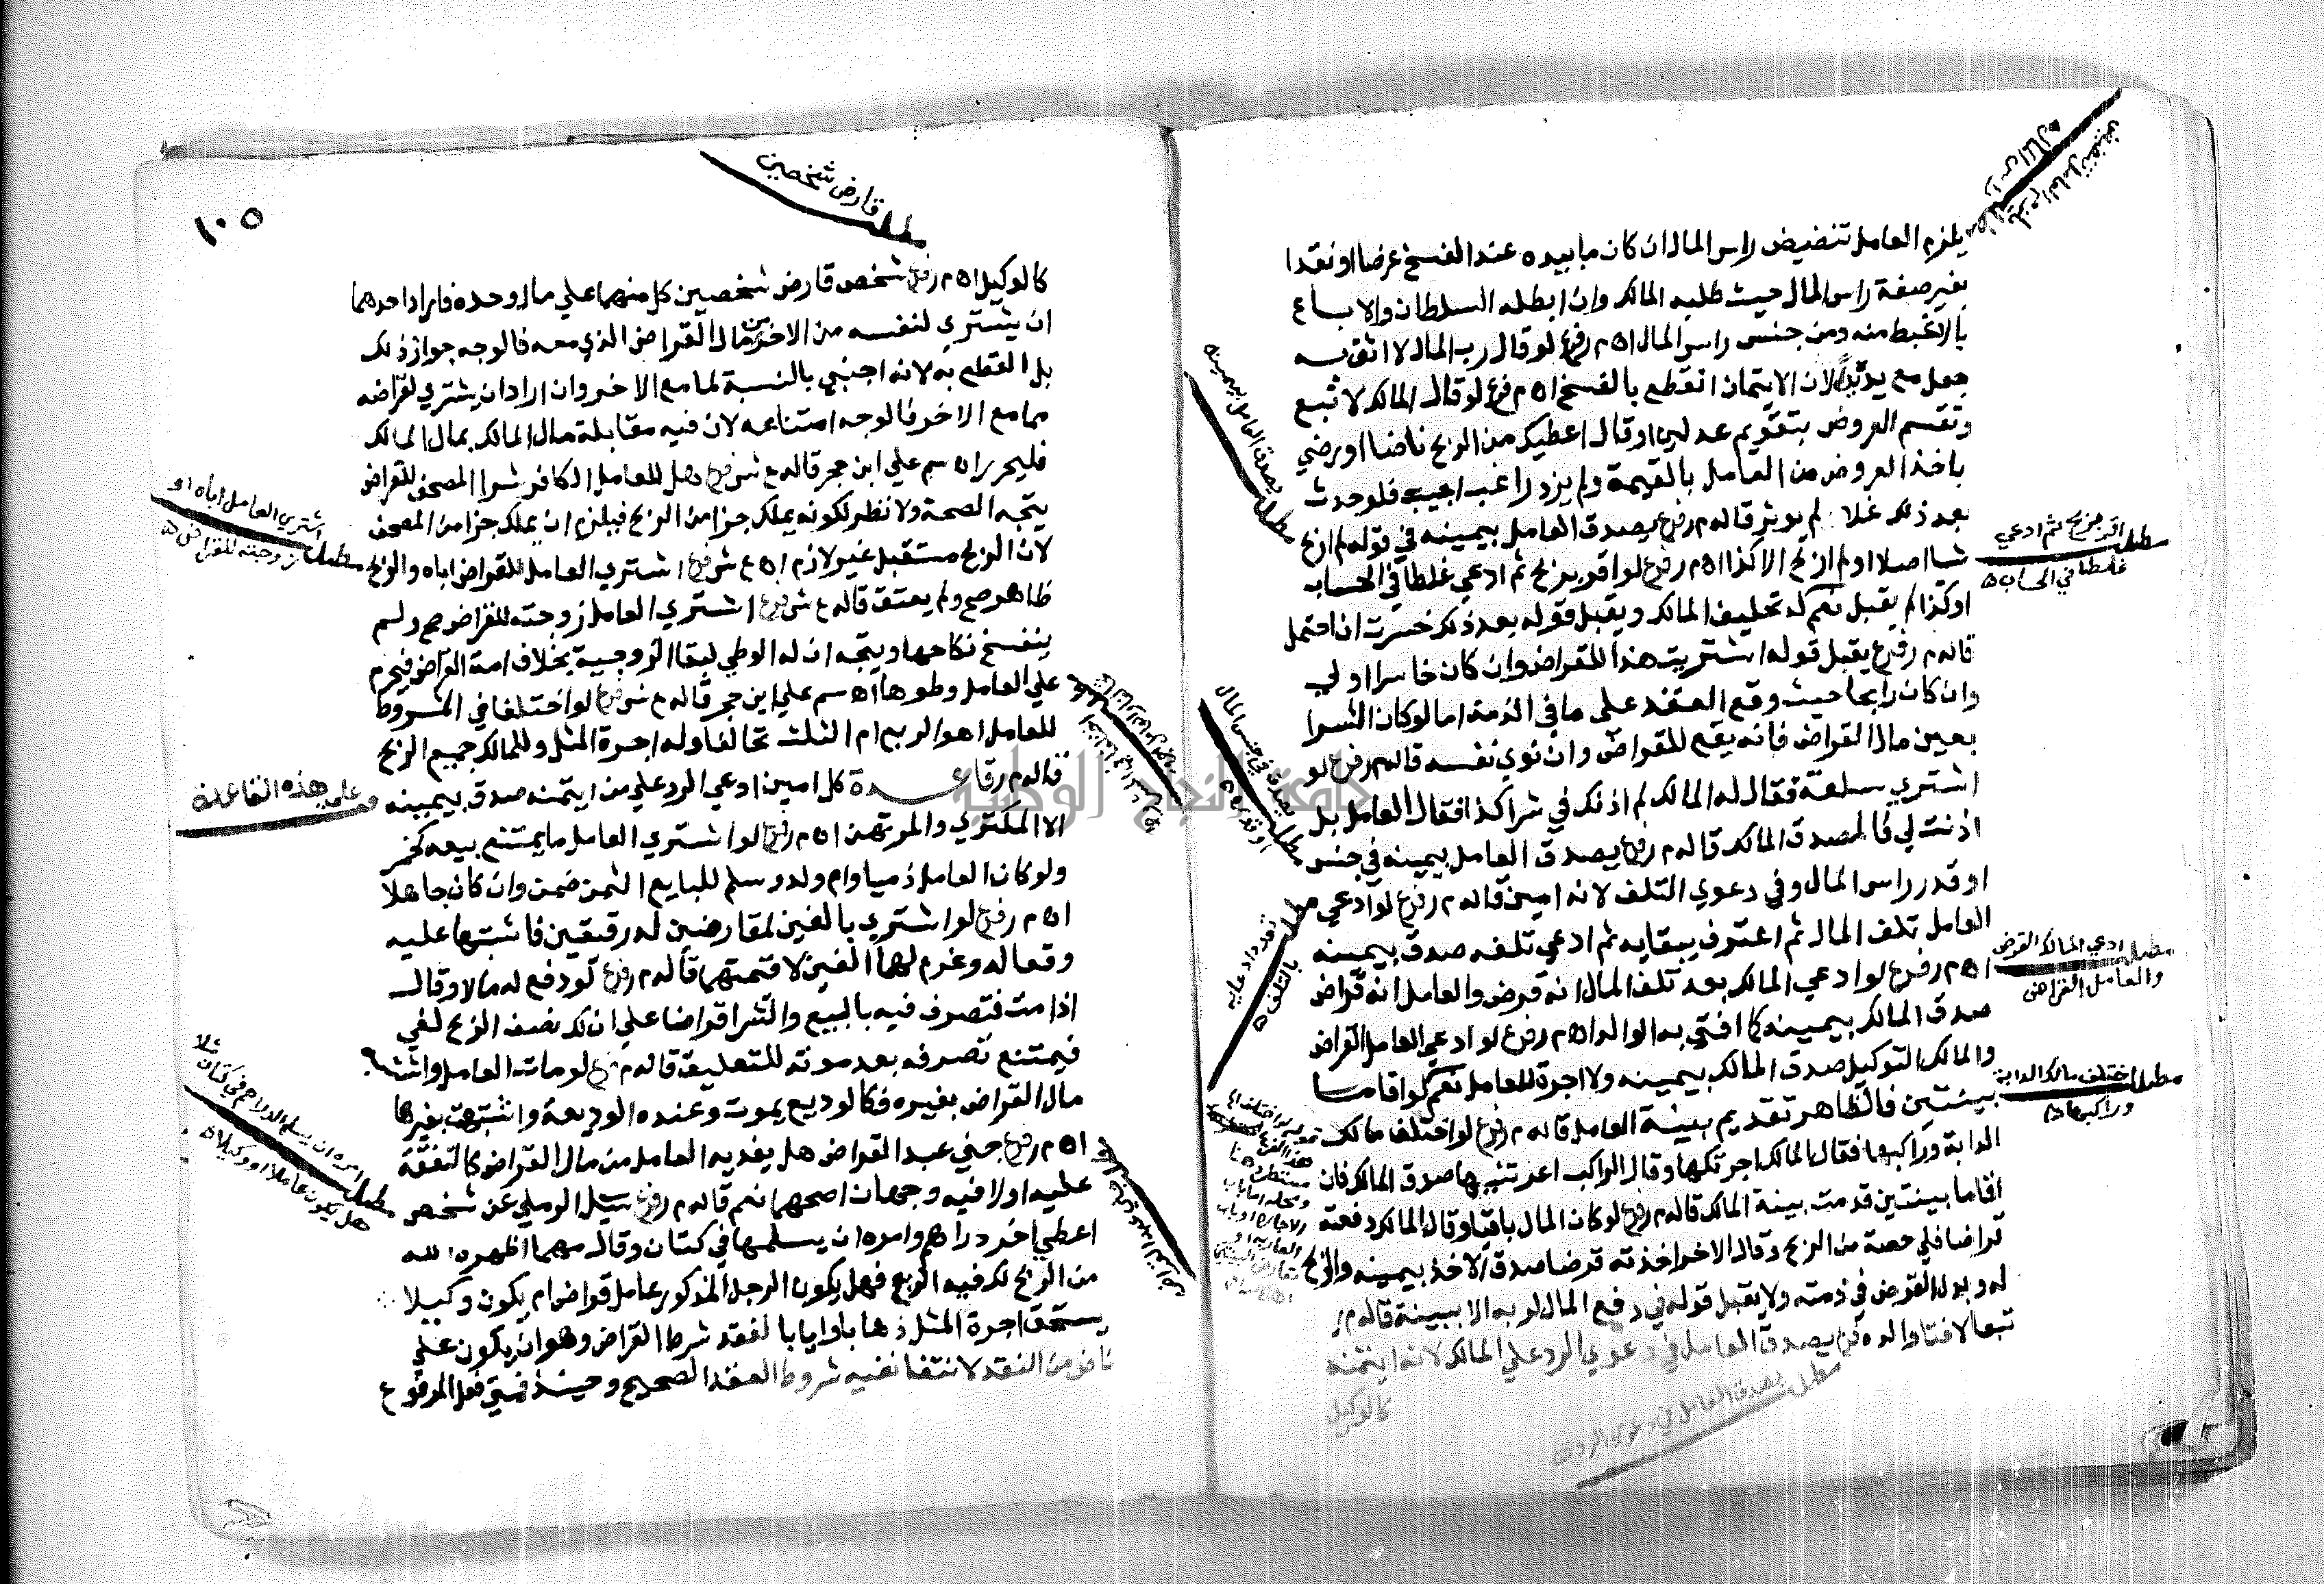 يلزم العامل تنضيض راس المال ان كان ما بيده عند الفسخ عرضا او نقدا
بغير صفة راس المال حيث طلبه المالك وان ابطله السلطان والا باع
بالاغبط منه ومن جنس راس المال اه م ر فرع لو قال رب المال لا اثق به
جعل مع يد لان الايتمان انقطع بالفسخ اه م فرع لو قال المالك لا تبع
وتقسم العروض بتقويم عدلين او قال اعطيك من الربح ناضا او رضي
باخذ العروض من العامل بالقيمة ولم يزد راغب اجيب فلو حدث
بعد ذلك غلا لم يوثر قاله م ر فرع يصدق العامل بيمينه في قوله لم اربح
شا اصلا او لم اربح الا كذا اه م ر فرع لو اقر بربح ثم ادعي غلطا في الحساب
او كذا لم يقبل نعم له تحليف المالك ويقبل قوله بعد ذلك خسرت ان احتمل
قاله م ر فرع يقبل قوله اشتريت هذا للقراض وان كان خاسرا او لي
وان كان رابحا حيث وقع العقد على ما في الذمة اما لو كان الشرا
بعين مال القراض فانه يقع للقراض وان نوي نفسه قاله م ر فرع لو
اشتري سلعة فقال له المالك لم اذنك في شرا كذا فقال العامل بل
اذنت لي فالمصدق المالك قاله م ر فرع يصدق العامل بيمينه في جنس
او قدر راس المال وفي دعوي التلف لانه امين قاله م ر فرع لو ادعي
العامل تلف المال ثم اعترف ببقايه ثم ادعي تلفه صدق بيمينه
اه م ر فرع لو ادعي المالك بعد تلف المال انه قرض والعامل انه قراض
صدق المالك بيمينه كما افتي به الوالد اه م ر فرع لو ادعي العامل القراض
والمالك التوكيل صدق المالك بيمينه ولا اجرة للعامل نعم لو اقاما
بينتين فالظاهر تقديم بينة العامل قاله م ر فرع لو اختلف مالك
الدابة وراكبها فقال المالك اجرتكها وقال الراكب اعرتنيها صدق المالك فان
اقاما بينتين قدمت بينة المالك قاله م ر فرع لو كان المال باقيا وقال المالك دفعته
قراضا فلي حصة من الربح وقال الاخر اخذته قرضا صدق الاخذ بيمينه والربح
له وبدل القرض في ذمته ولا يقبل قوله في دفع المال لربه الا ببينة قاله م ر
تبعا لافتا والده فرع يصدق العامل في دعوي الرد علي المالك لانه ايتمنه
كالوكيل
مطلب يصدق العامل في دعوي الرد
مطلب اقر بربح ثم ادعي
غلطا في الحساب
مطلب ادعي المالك القرض
والعامل القراض
مطلب اختلف مالك الدابة
وراكبها
مطلب يصدق العامل بيمينه
مطلب يصدق في جنس المال
او قدره
١٠٥
مطلب قارض شخصين
كالوكيل اه م ر فرع شخص قارض شخصين كل منهما علي مال وحده فاراد احدهما
ان يشتري لنفسه من الاخر من مال القراض الذي معه فالوجه جواز ذلك
بل القطع به لانه اجنبي بالنسبة لما مع الاخر وان اراد ان يشتري لقراضه
مما مع الاخر فالوجه امتناعه لان فيه مقابلة مال المالك بمال المالك
فليحرر اه سم علي ابن حجر قاله ع ش فرع هل للعامل الكافر شرا المصحف للقراض
يتجه الصحة ولا نظر لكونه يملك جزا من الربح فيلزم ان يملك جزا من المصحف
لان الربح مستقبل غير لازم اه ع ش فرع اشتري العامل للقراض اباه والربح
ظاهر صح ولم يعتق قاله ع ش فرع اشتري العامل زوجته للقراض صح ولم
ينفسخ نكاحها ويتجه ان له الوطي لبقا الزوجية بخلاف امة القراض فيحرم
علي العامل وطوها اه سم علي ابن حجر قاله ع ش فرع لو اختلفا في المشروط
للعامل اهو الربع ام الثلث تحالفا وله اجرة المثل وللمالك جميع الربح
قاله م ر قاعدة كل امين ادعي الرد علي من ايتمنه صدق بيمينه
الا المكتري والمرتهن اه م ر فرع لو اشتري العامل ما يمتنع بيعه كخمر
ولو كان العامل ذميا وام ولد وسلم للبايع الثمن ضمن وان كان جاهلا
اه م ر فرع لو اشتري بالفين لمقارضين له رقيقين فاشتبها عليه
وقعا له وغرم لهما الفين لا قيمتهما قاله م ر فرع لو دفع له مالا وقال
اذا مت فتصرف فيه بالبيع والشرا قراضا علي ان لك نصف الربح لغي
فيمتنع تصرفه بعد موته للتعليق قاله م ر فرع لو مات العامل واشتبه
مال القراض بغيره فكالوديع يموت وعنده الوديعة واشتبهت بغيرها
اه م ر فرع جني عبد القراض هل يفديه العامل من مال القراض كالنفقة
عليه اولا فيه وجهان اصحهما نعم قاله م ر فرع سيل الرملي عن شخص
اعطي اخر دراهم وامره ان يسلمها في كتان وقال مهما اظهره الله
من الربح لك فيه الربع فهل يكون الرجل المذكور عامل قراض ام يكون وكيلا
يستحق اجرة المثل ذهابا وايابا لفقد شرط القراض وهو ان يكون علي
ناض من النقد لانتفا نفيه شروط العقد الصحيح وحينئذ فيتي فعل المدفوع
مطلب اشتري العامل اباه او
زوجته للقراض
قف علي هذه القاعدة
مطلب امره ان يسلم الدراهم في كتان مثلا
هل يكون عاملا او وكيلا